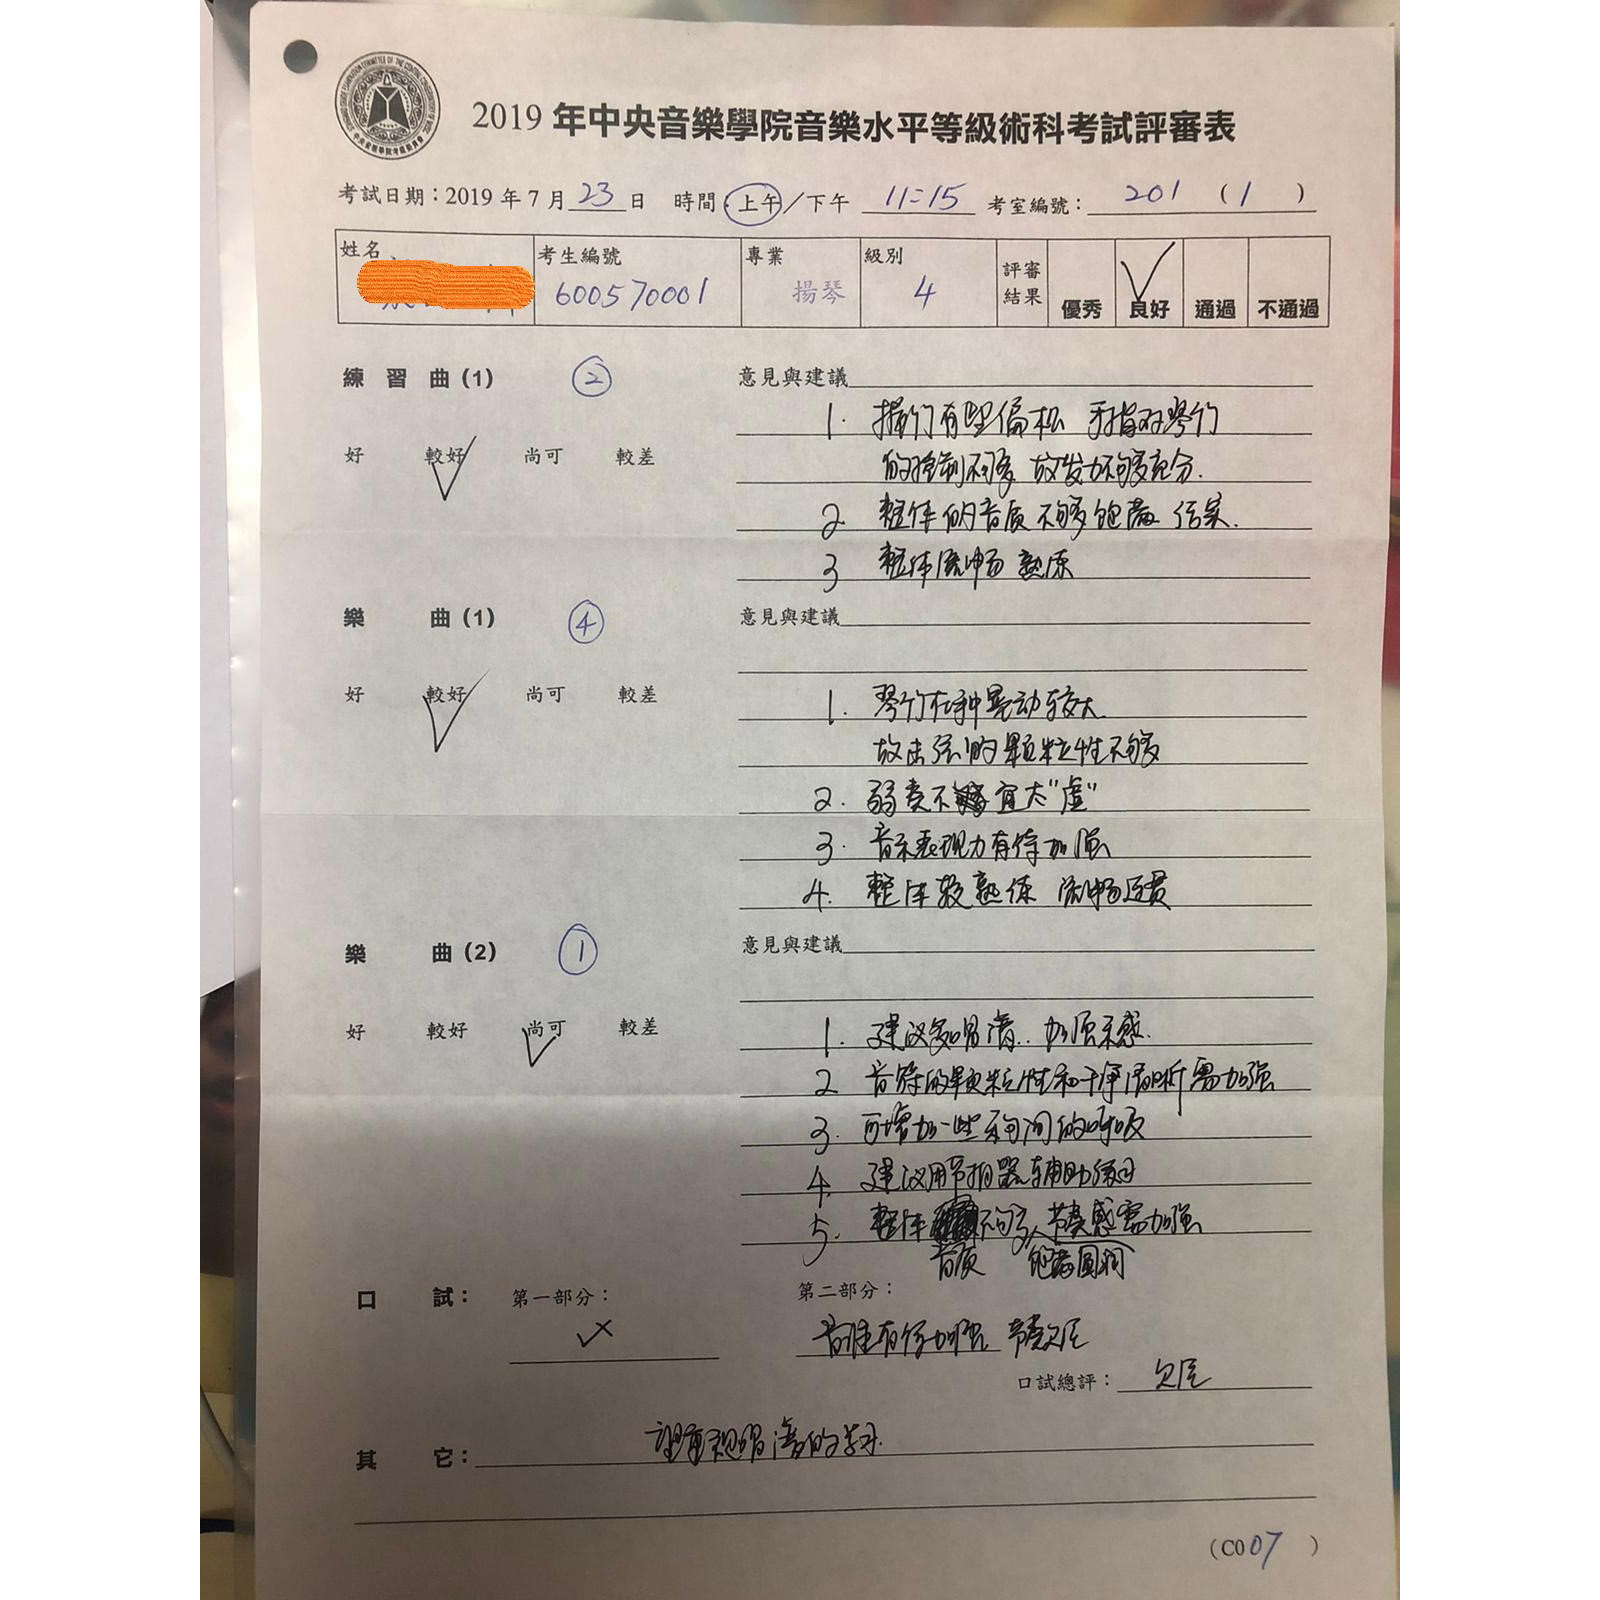 2019 年中央音樂學院音樂水平等級術科考試評審表
考試日期：2019 年 7 月 23 日 時間：上午／下午 11:15 考室編號： 201 ( 1 )
姓名 考生編號 600570001 專業 揚琴 級別 4 評審結果 優秀 良好 通過 不通過
練習曲(1) ② 意見與建議
好 較好 尚可 較差
1. 握竹有些偏松 手指对琴竹
的控制不够 故发力不够充分.
2 整体的音质不够饱满 结实.
3 整体流畅 熟练
樂曲(1) ④ 意見與建議
好 較好 尚可 較差
1. 琴竹 晃动较大.
故击弦的颗粒性不够
2. 弱奏不宜太"虚"
3. 音乐表现力有待加强
4. 整体较熟练 流畅连贯
樂曲(2) ① 意見與建議
好 較好 尚可 較差
1. 建议多唱谱.. 加强乐感.
2 音符的颗粒性和干净清晰需加强
3. 可增加一些乐句间的呼吸
4. 建议用节拍器辅助练习
5. 整体音质不够饱满圆润 节奏感需加强
口試： 第一部分： 第二部分：
音准有待加强 节奏欠佳
口試總評： 欠佳
其它： 望重视唱谱的学习.
(C007 )